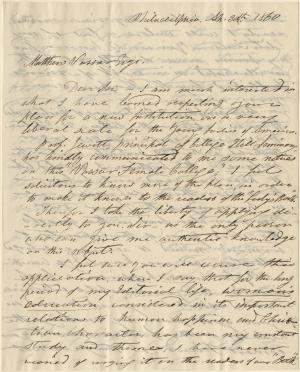 Philadelphia, 1860
Matthew Vassar Esqr.
Dear Sir I am much interested in
what I have learned respecting your
plan for a new Institution on a very
liberal scale for the Young Ladies of America.
Prof. Jewett, principal of
has kindly communicated to me some notices
on this Vassar Female College. I feel
solicitous to know more of the plan, in order
to make it known to the readers of the Lady's Book.
Therefor I take the liberty of applying di-
rectly to you, Sir, as the only person
who can give me authentic knowledge
on this subject.
I feel sure you will excuse this
application when I say that for the long
period of my Editorial life, woman's
education, considered in its important
relations to human happiness and Chris-
tian character has been my constant
study and theme. I have never
of urging it on the readers of our "Book"